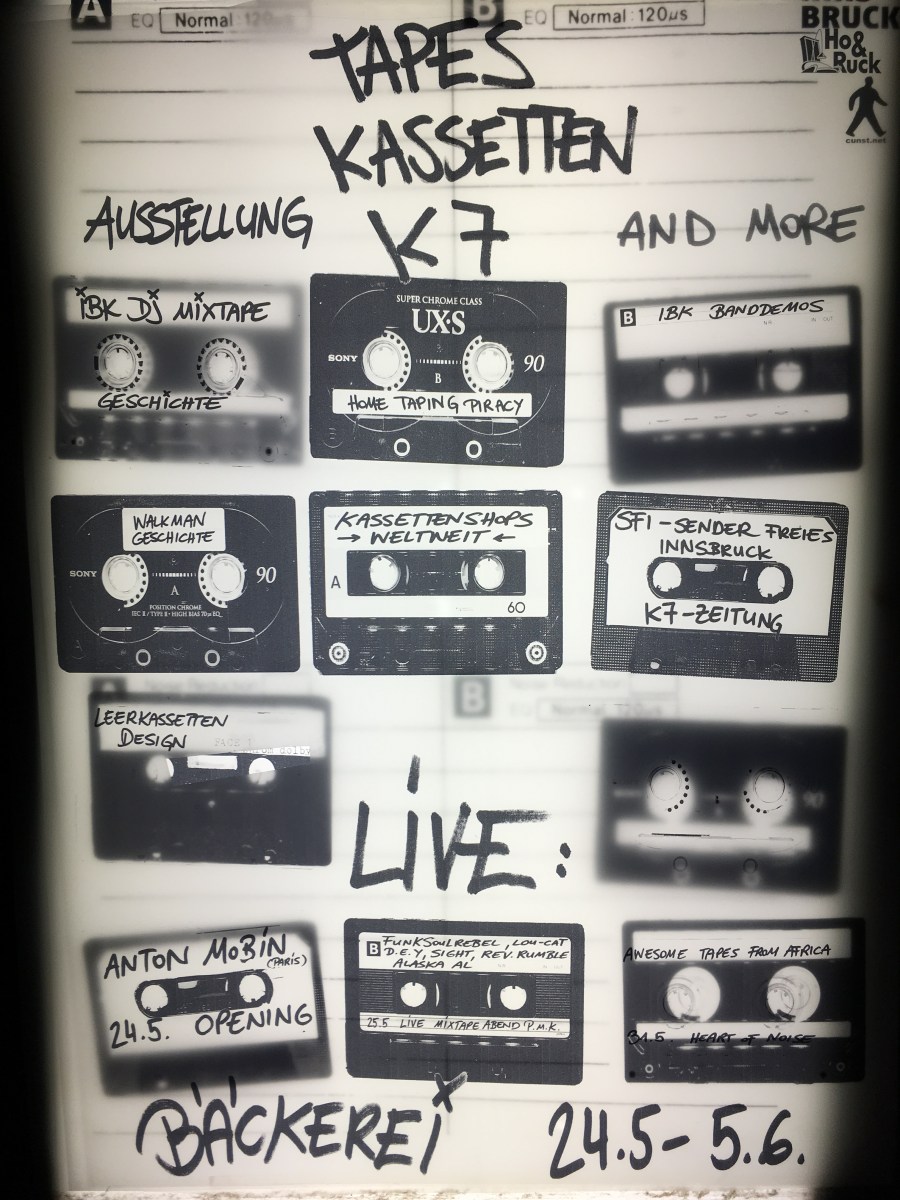 A EQ Normal:120µs
B EQ Normal:120µs
BRUCK
Ho&
Ruck
cunst.net
TAPES
KASSETTEN
AUSSTELLUNG K7 AND MORE
IBK DJ MIXTAPE
GESCHICHTE
SUPER CHROME CLASS
UX·S
SONY
B
90
HOME TAPING PIRACY
B IBK BANDDEMOS
WALKMAN
GESCHICHTE
SONY
A
90
POSITION CHROME
IEC II / TYPE II • HIGH BIAS 70µs EQ
KASSETTENSHOPS
→ WELTWEIT ←
A
60
SFI - SENDER FREIES
INNSBRUCK
K7-ZEITUNG
B
EQ Normal 120µs
LEERKASSETTEN
DESIGN
LIVE:
90
ANTON MOBIN
(PARIS)
24.5. OPENING
B FUNKSOULREBEL, LOU-CAT
D.E.Y, SIGHT, REV. RUMBLE
ALASKA AL
25.5 LIVE MIXTAPE ABEND P.M.K.
AWESOME TAPES FROM AFRICA
31.5. HEART OF NOISE
BÄCKEREI 24.5- 5.6.